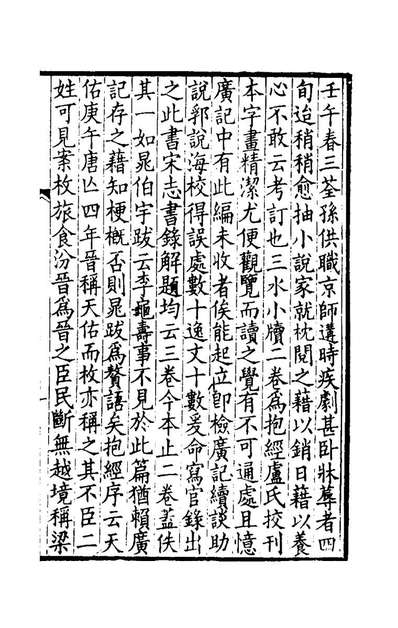 壬午春三荃孫供職京師遘時疾劇甚卧牀蓐者四
旬迨稍稍愈抽小說家就枕閱之藉以銷日藉以養
心不敢云考訂也三水小牘二卷為抱經盧氏挍刊
本字畫精潔尤便觀覽而讀之覺有不可通處且憶
廣記中有此編未收者俟能起立卽檢廣記續談助
說郛說海校得誤處數十逸文十數爰命寫官錄出
之此書宋志書錄解題均云三卷今本止二卷蓋佚
其一如晁伯宇跋云李龜壽事不見於此篇猶賴廣
記存之藉知梗槪否則晁跋爲贅語矣抱經序云天
佑庚午唐亾四年晉稱天佑而枚亦稱之其不臣二
姓可見案枚旅食汾晉爲晉之臣民斷無越境稱梁